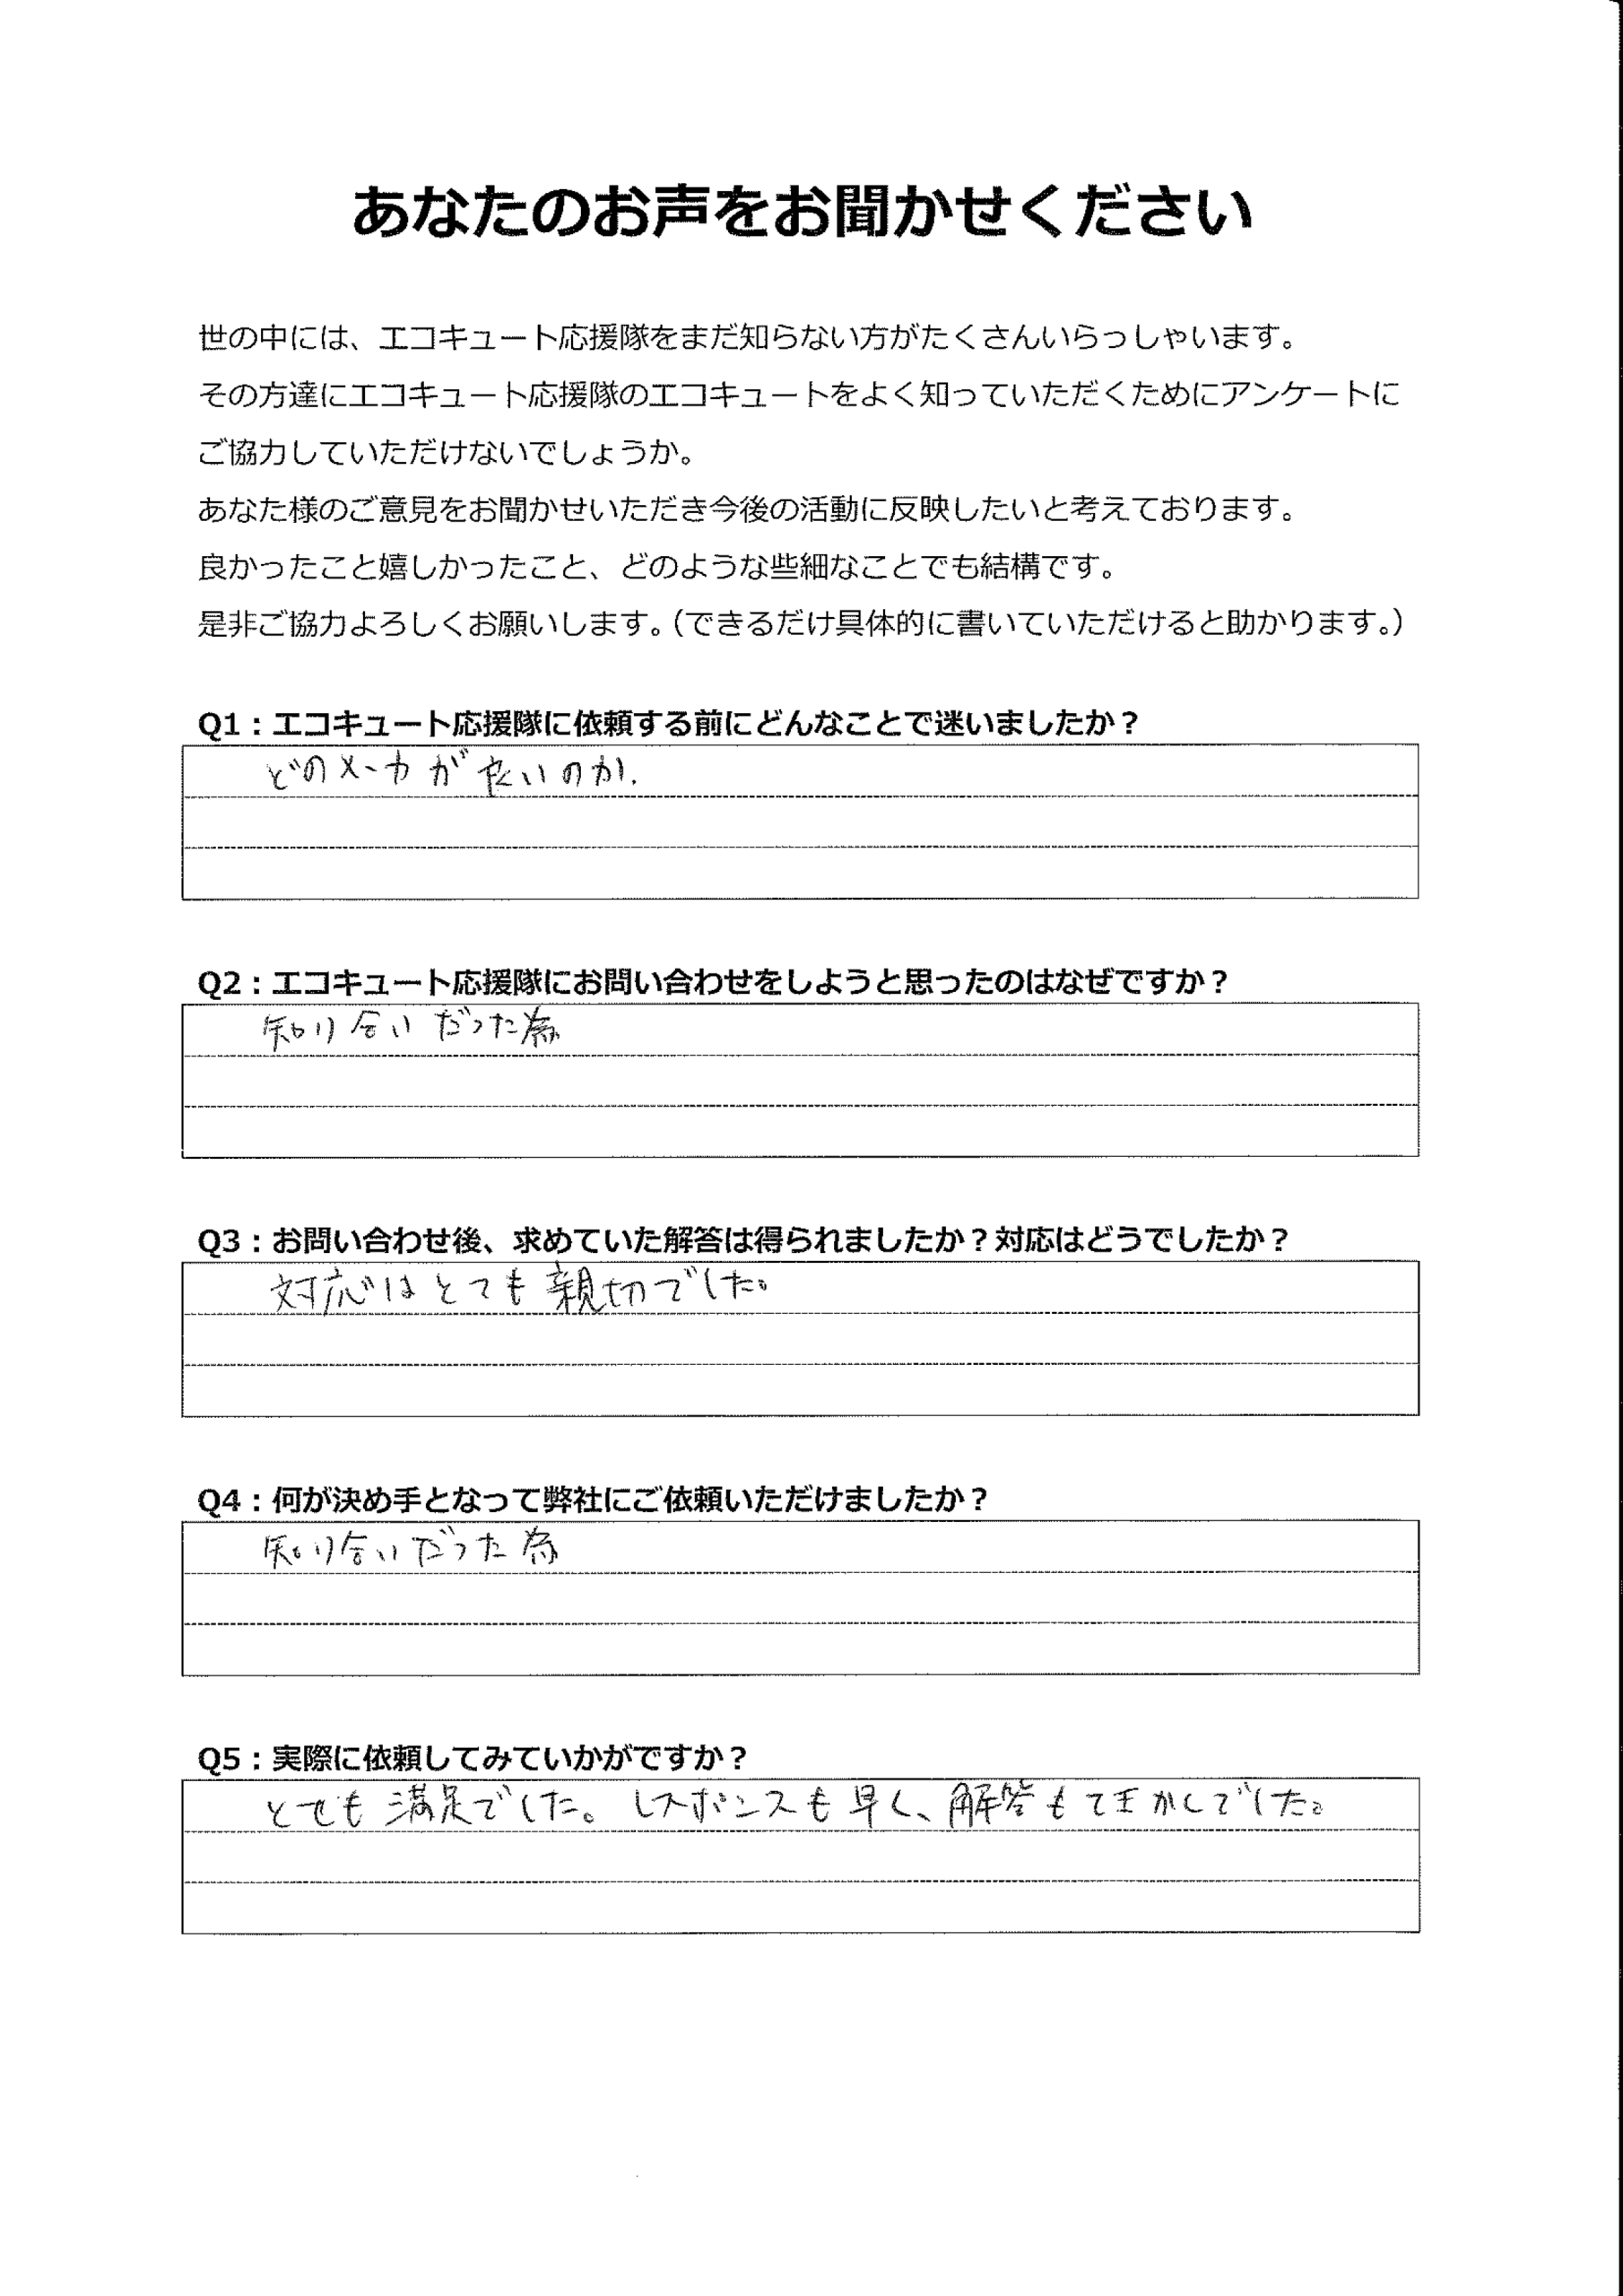 あなたのお声をお聞かせください
世の中には、エコキュート応援隊をまだ知らない方がたくさんいらっしゃいます。
その方達にエコキュート応援隊のエコキュートをよく知っていただくためにアンケートに
ご協力していただけないでしょうか。
あなた様のご意見をお聞かせいただき今後の活動に反映したいと考えております。
良かったこと嬉しかったこと、どのような些細なことでも結構です。
是非ご協力よろしくお願いします。（できるだけ具体的に書いていただけると助かります。）
Q1：エコキュート応援隊に依頼する前にどんなことで迷いましたか？
どのメーカが良いのか.
Q2：エコキュート応援隊にお問い合わせをしようと思ったのはなぜですか？
知り合いだった為
Q3：お問い合わせ後、求めていた解答は得られましたか？対応はどうでしたか？
対応はとても親切でした。
Q4：何が決め手となって弊社にご依頼いただけましたか？
知り合いだった為
Q5：実際に依頼してみていかがですか？
とても満足でした。レスポンスも早く、解答も でした。